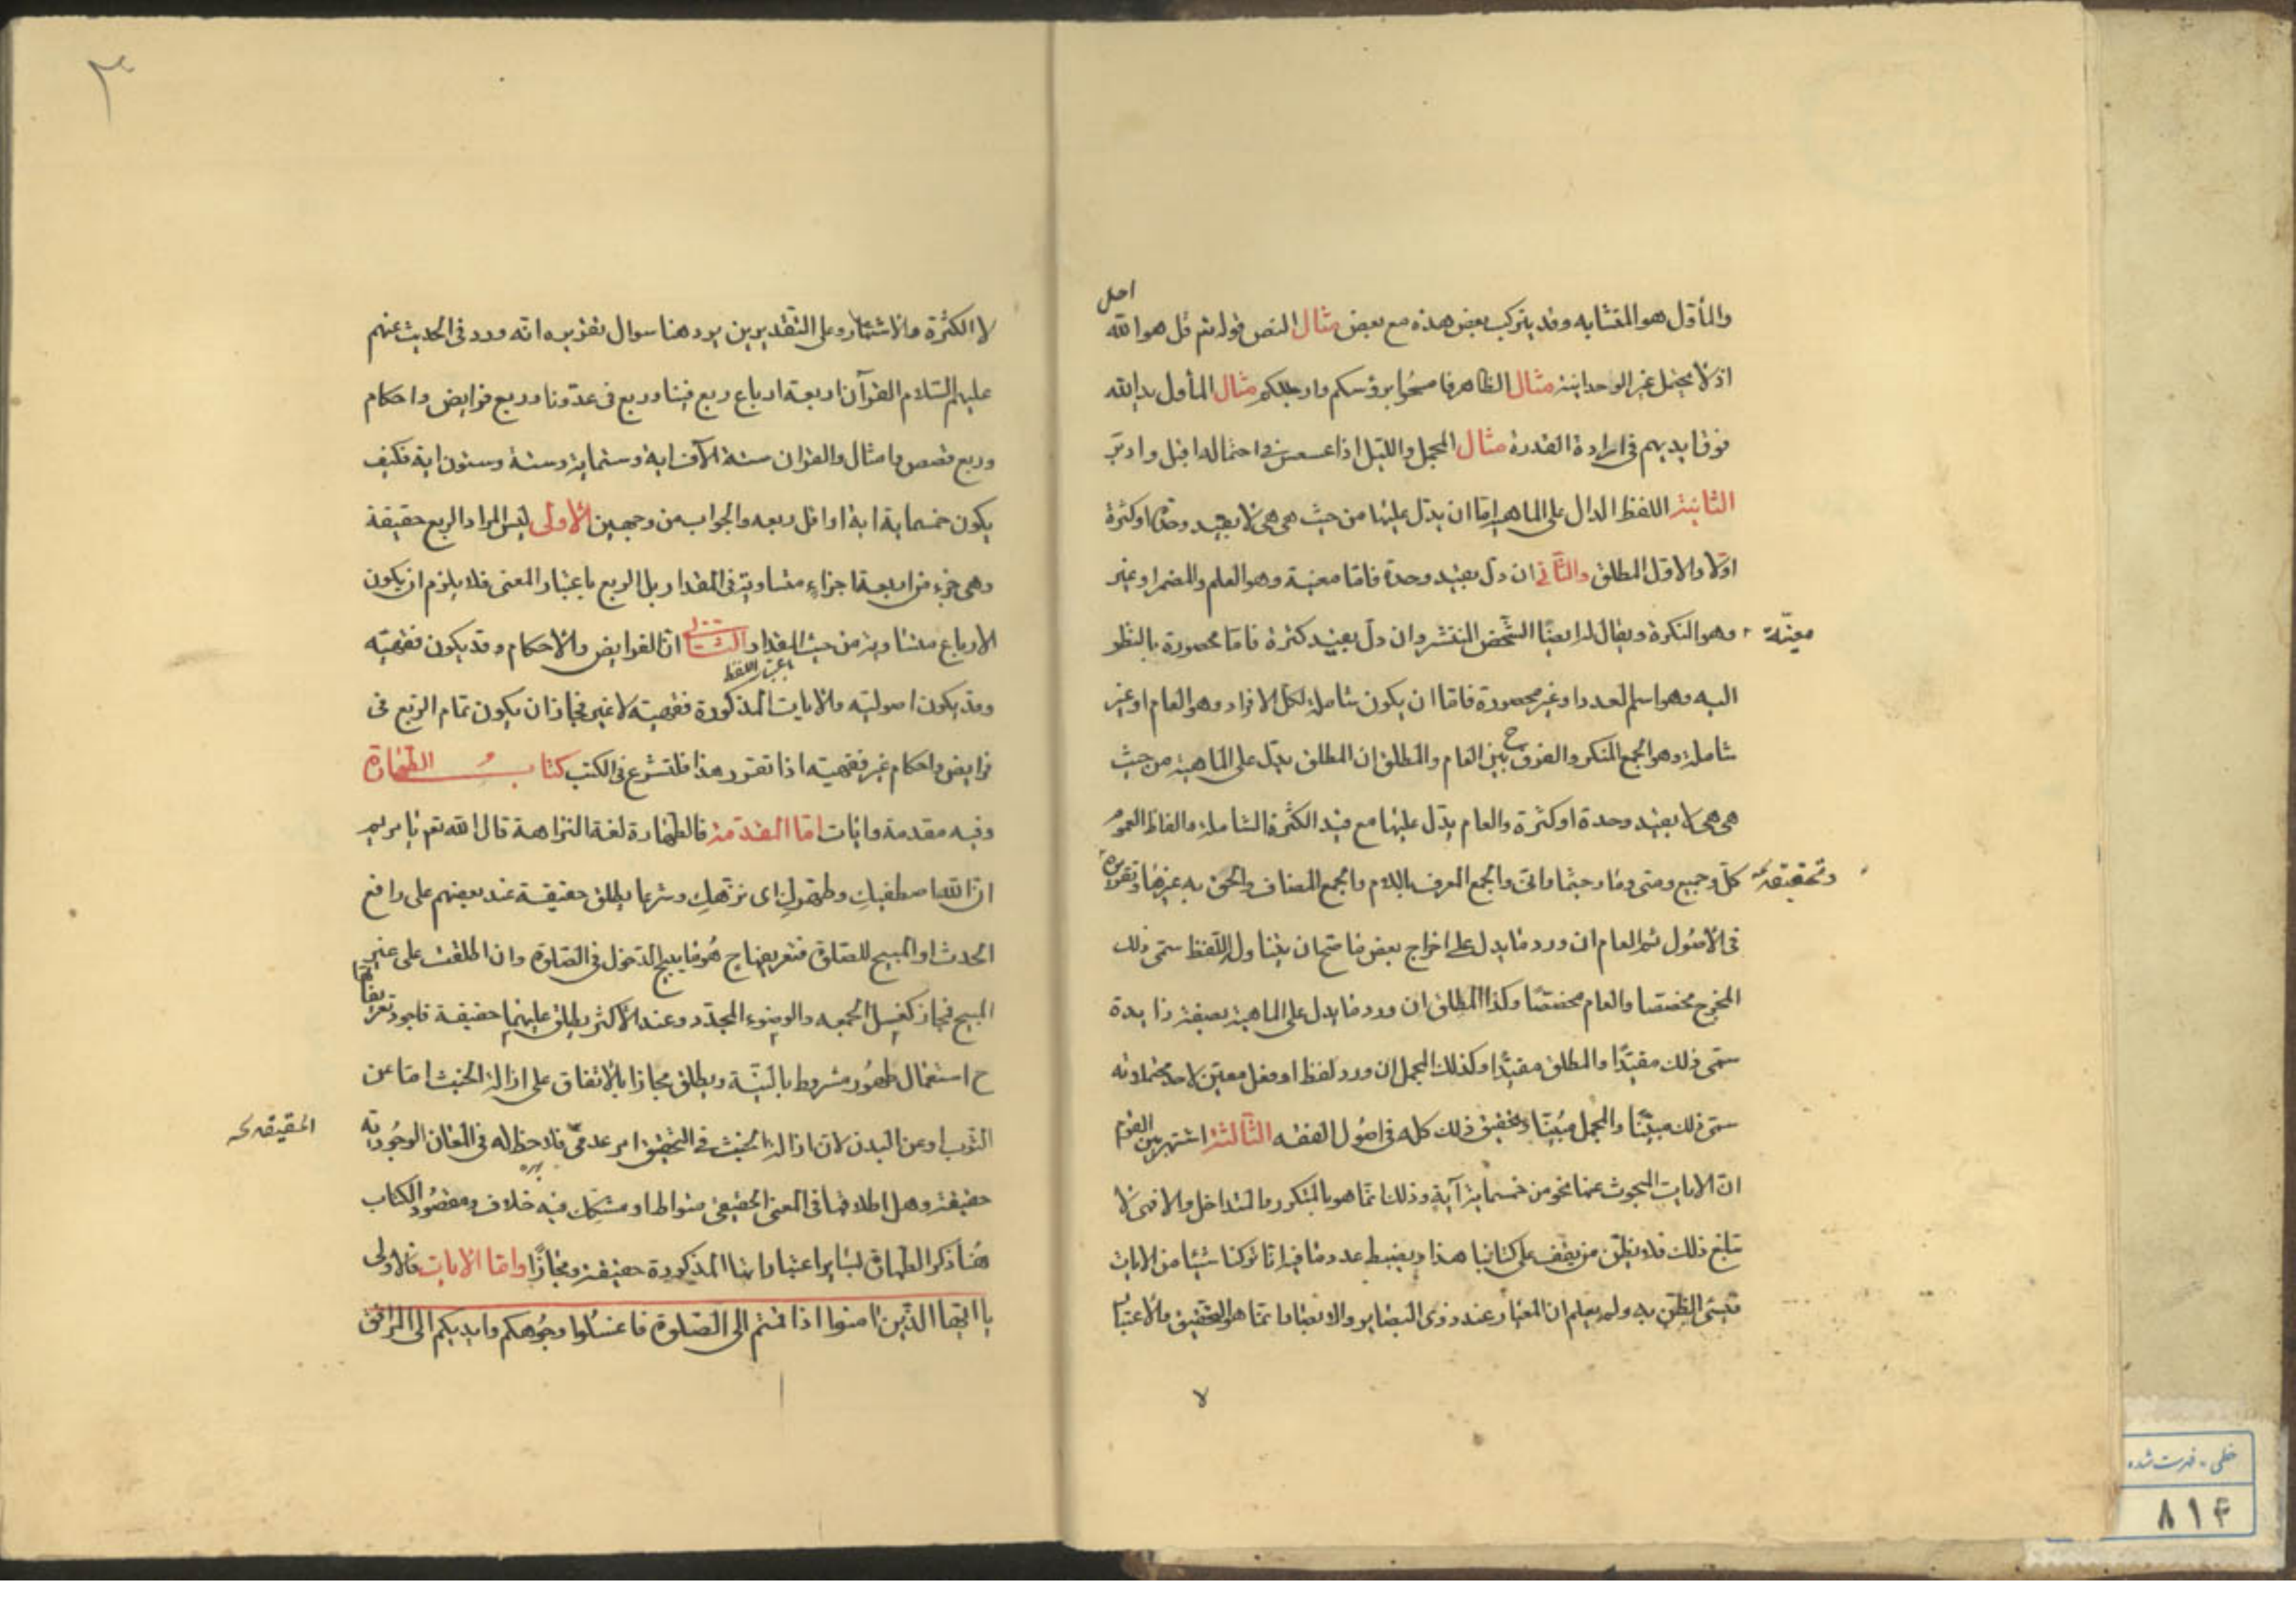 احل
والمأول هو المتشابه وقد يتركب بعض هذه مع بعض مثال النص قوله تع قل هو الله
اذ لا يحتمل غير الوحدانية مثال الظاهر فامسحوا برؤسكم وارجلكم مثال المأول يد الله
فوق ايديهم في ارادة القدرة مثال المجمل والليل اذا عسعس في احتماله اقبل وادبر
الثانية اللفظ الدال على الماهية اما ان يدل عليها من حيث هي هي لا بقيد وحدة او كثرة
اولا والاول المطلق والثاني ان دل بقيد وحدة فاما معينة وهو العلم والمضمر او غير
معينة وهو النكرة ويقال له ايضا الشخص المنتشر وان دل بقيد كثرة فاما محصورة بالنظر
اليه وهو اسم العدد او غير محصورة فاما ان يكون شاملة لكل الافراد وهو العام او غير
شاملة وهو الجمع المنكر والفرق ح بين العام والمطلق ان المطلق يدل على الماهية من حيث
هي هي لا بقيد وحدة او كثرة والعام يدل عليها مع قيد الكثرة الشاملة والفاظ العموم
كل وجميع ومتى وما وحيثما واتى والجمع المعرف باللام والجمع المضاف والحق به غيرها وتقريره
وتحقيقه
في الاصول ثم العام ان ورد ما يدل على اخراج بعض ما صح ان يتناوله اللفظ سمى ذلك
المخرج مخصصا والعام مخصصا وكذا المطلق ان ورد ما يدل على الماهية بصفة زايدة
سمى ذلك مقيدا والمطلق مقيدا وكذلك المجمل ان ورد لفظ او فعل معين لاحد محتملاته
سمى ذلك مبينا والمجمل مبينا وتحقيق ذلك كله في اصول الفقه الثالثة اشتهر بين القوم
ان الايات المبحوث عنها نحو من خمسماية آية وذلك انما هو بالمتكرر والمتداخل والا فهى لا
تبلغ ذلك فلا يظن من يقف على كتابنا هذا ويضبط عدد ما فيه انا تركنا شيئا من الايات
فيسئ الظن به ولم يعلم ان المعيار عند ذوى البصاير والابصار انما هو التحقيق والاعتبار
لا
٣
لا الكثرة والاشتهار وعلى التقديرين يرد هنا سوال تقريره انه ورد في الحديث عنهم
عليهم السلام القرآن اربعة ارباع ربع فينا وربع في عدونا وربع فرايض واحكام
وربع قصص وامثال والقران ستة الآف اية وستماية وستة وستون اية فكيف
يكون خمسماية اية او اقل ربعه والجواب من وجهين الاولى ليس المراد الربع حقيقة
وهى جزء من اربعة اجزاء متساوية في المقدار بل الربع باعتبار المعنى فلا يلزم ان يكون
الارباع متساوية من حيث المقدار والثانى ان الفرايض والاحكام وقد يكون فقهيه
باعتبار اللفظ
وقد يكون اصوليه والايات المذكورة فقهية لا غير فجاز ان يكون تمام الربع في
فرايض واحكام غير فقهيته اذا تقرر هذا فلنشرع في الكتب كتاب الطهارة
وفيه مقدمة وايات اما المقدمة فالطهارة لغة النزاهة قال الله تع يا مريم
ان الله اصطفيك وطهرك اى نزهك وشرعا يطلق حقيقة عند بعضهم على رافع
الحدث او المبيح للصلوة فتعريفها ح هو ما يبيح الدخول في الصلوة وان اطلقت على غير
المبيح فمجاز كغسل الجمعه والوضوء المجدد وعند الاكثر يطلق عليهما حقيقة فاجود تعريفاتها
ح استعمال طهور مشروط بالنية ويطلق مجازا بالاتفاق على ازالة الخبث اما عن
الثوب او عن البدن لان ازالة الخبث في التحقيق امر عدمى فلا حظ له في المعانى الوجودية
الحقيقه
حقيقة وهل اطلاقها في المعنى الحقيقى متواط او مشكك فيه خلاف ومقصود الكتاب
هنا ذكر الطهارة بساير اعتباراتها المذكورة حقيقة ومجازا واما الايات فالاولى
يا ايها الذين امنوا اذا قمتم الى الصلوة فاغسلوا وجوهكم وايديكم الى المرافق
خطى - فهرست شده
٨١۴